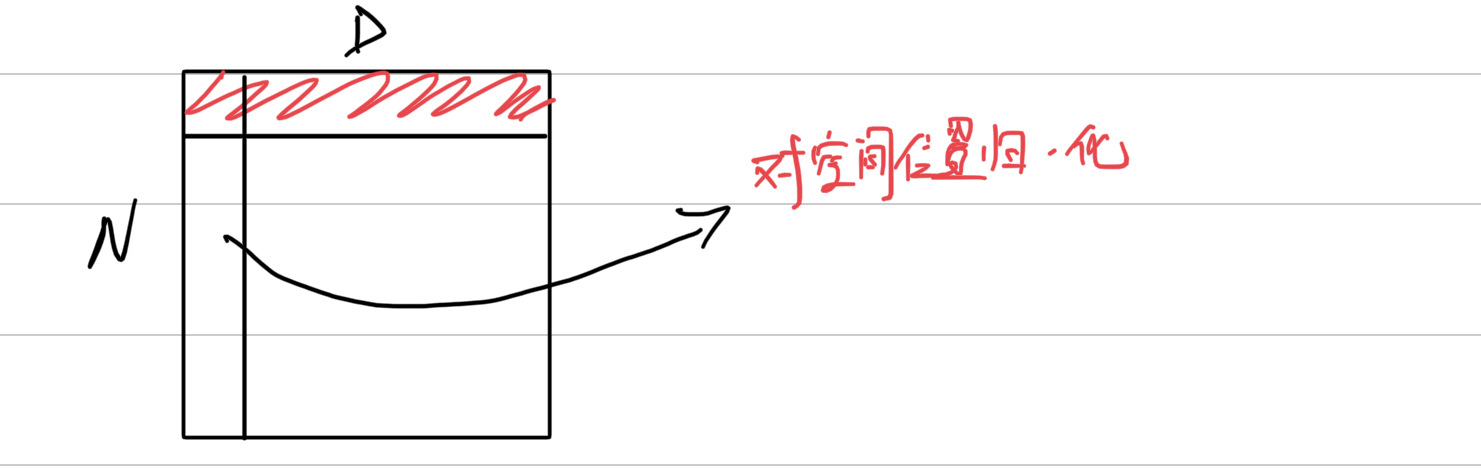 D
对空间位置归一化
N